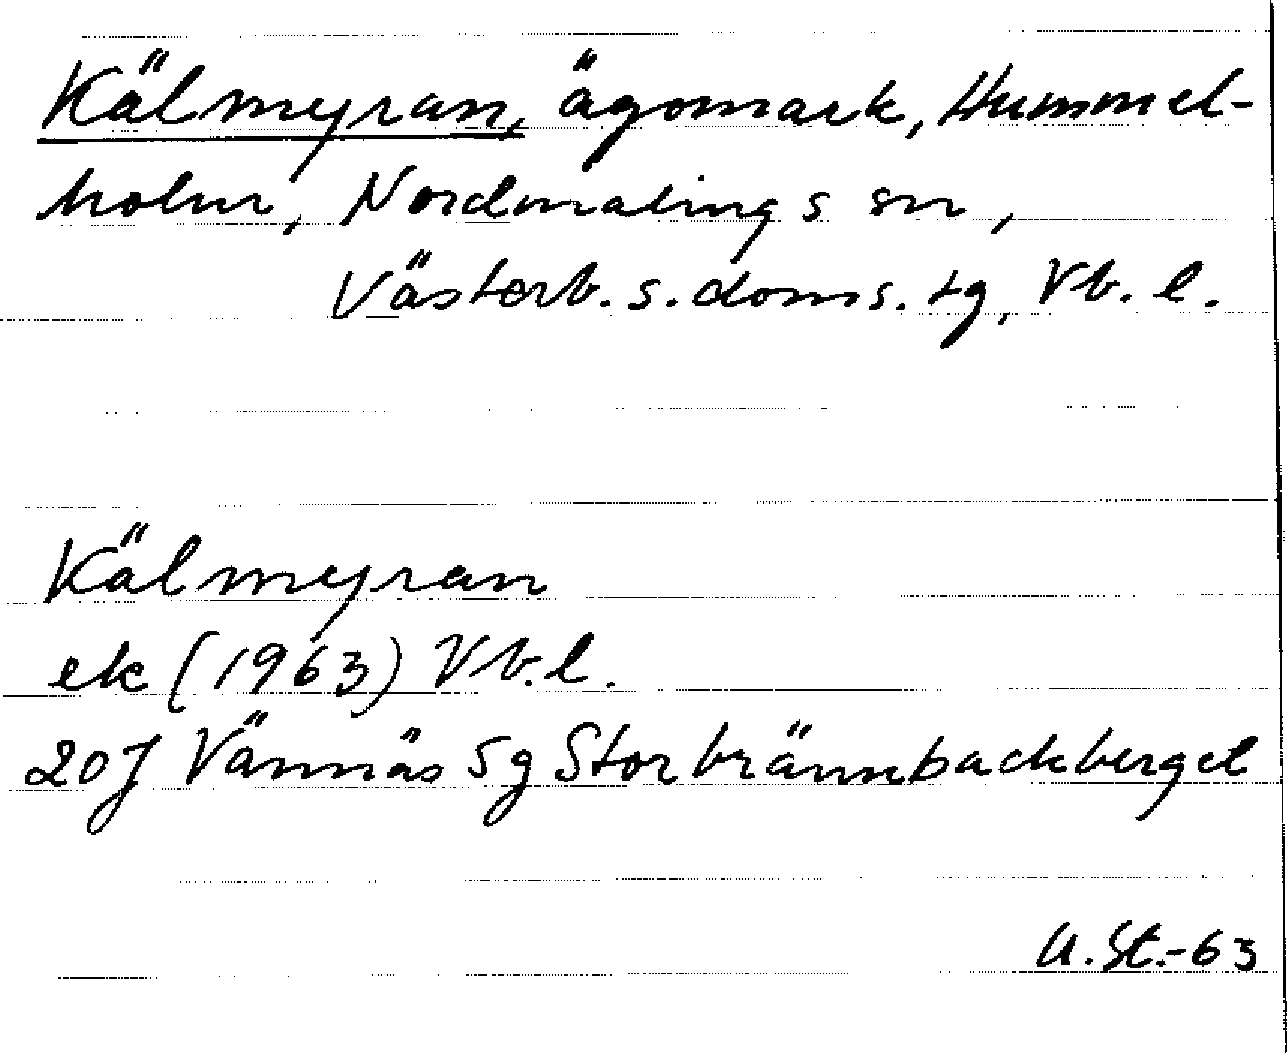 Kälmyran, ägomark, Hummel-
holm, Nordmalings sn,
Västerb. s. doms. tg, Vb. l.
Kälmyran
ek (1963) Vb. l.
20J Vännäs 5g Storbrännbackberget
U. St.-63